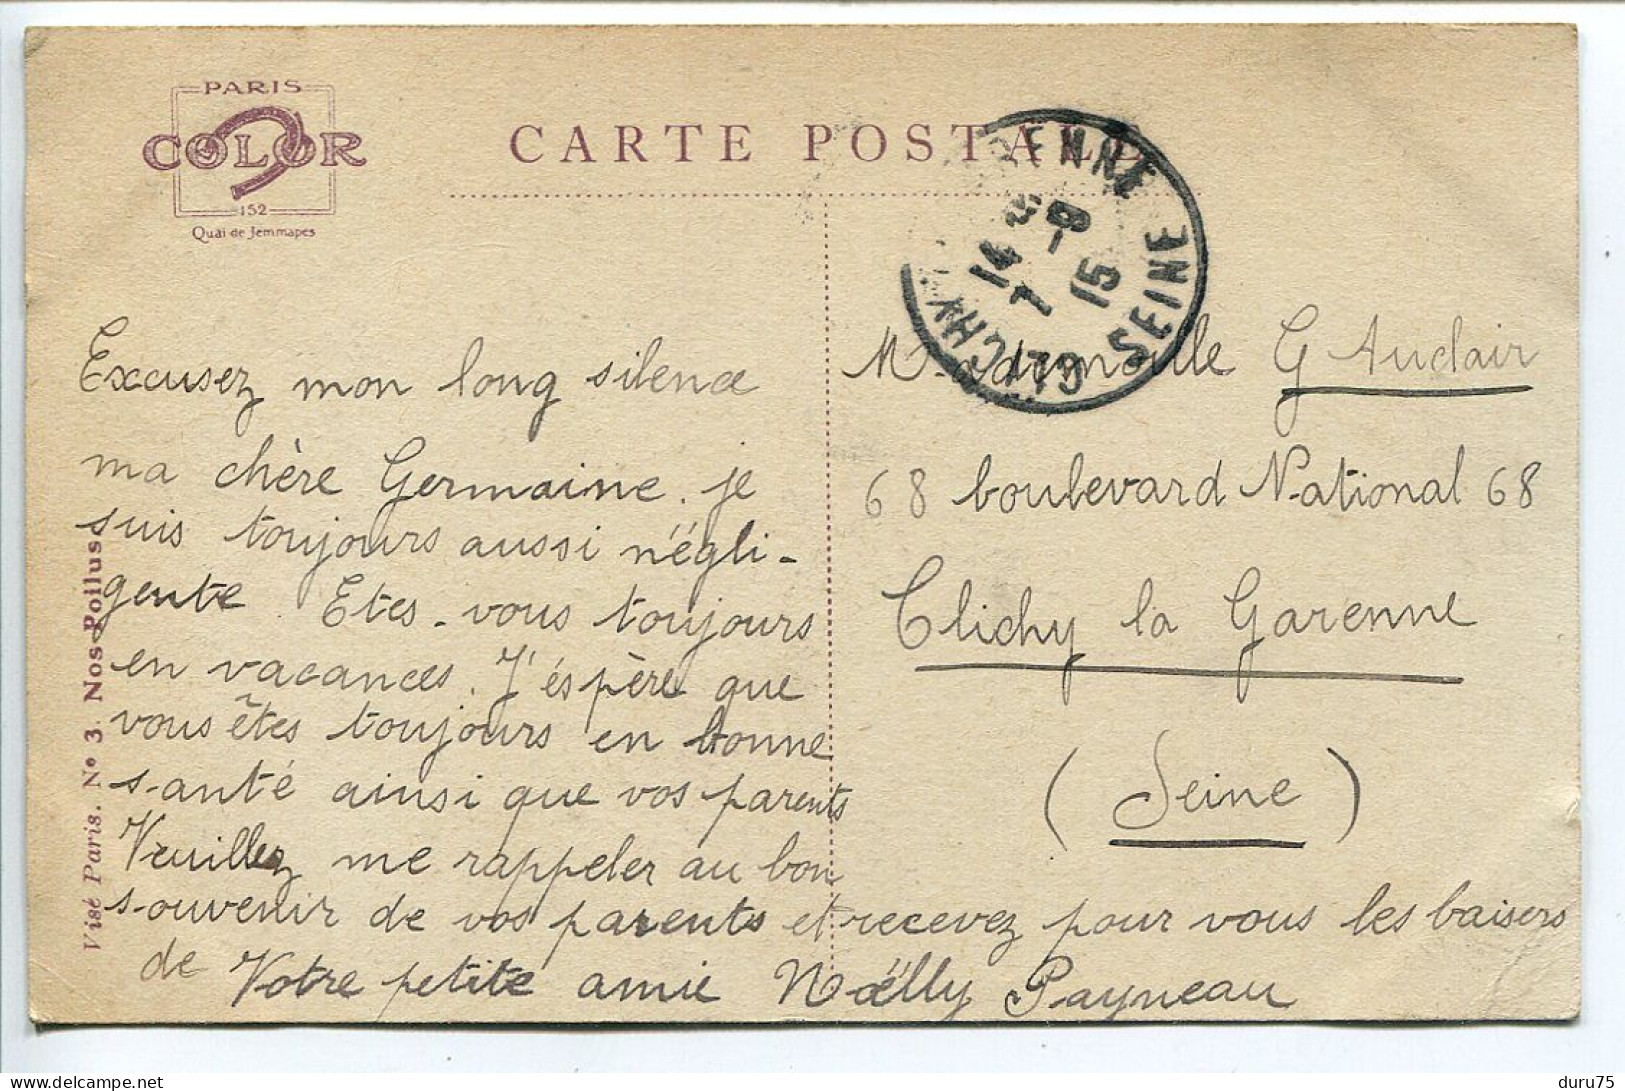 PARIS
COLOR
152
Quai de Jemmapes
CARTE POSTALE
CLICHY
SEINE
14 7 15
Visé Paris. Nº 3. Nos Poilus
Excusez mon long silence
ma chère Germaine. je
suis toujours aussi négli-
gente. Etes-vous toujours
en vacances. J'éspère que
vous êtes toujours en bonne
santé ainsi que vos parents
Veuillez me rappeler au bon
souvenir de vos parents et recevez pour vous les baisers
de Votre petite amie Noëlly Payneau
Mademoiselle G Auclair
68 boulevard National 68
Clichy la Garenne
(Seine)
delcampe.net
duru75